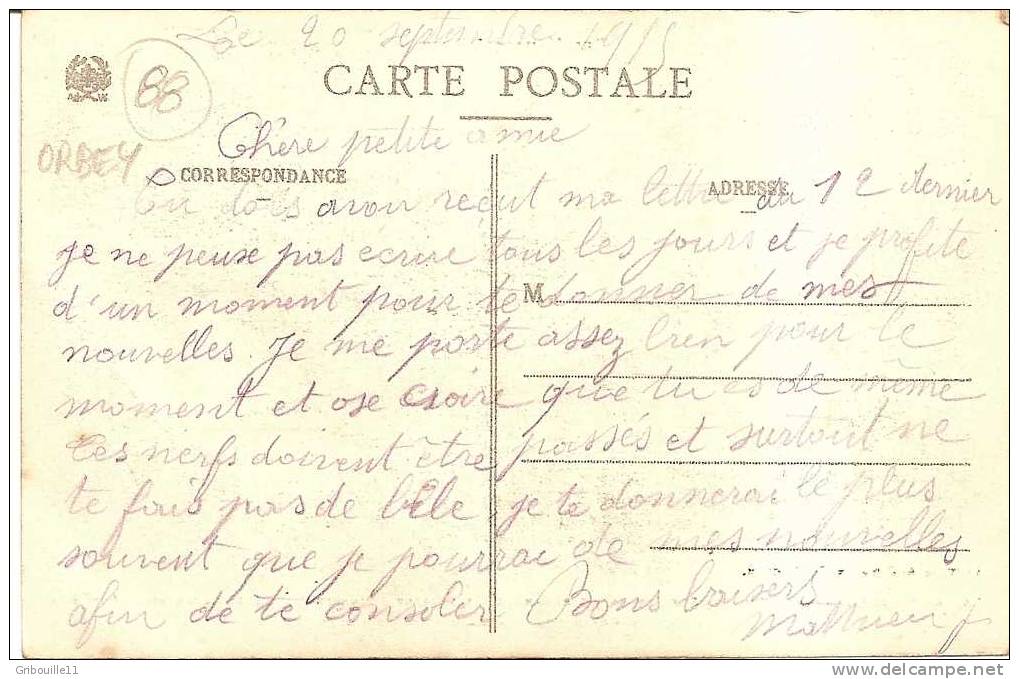 Le 20 septembre 1915
CARTE POSTALE
88
ORBEY
Chère petite amie
CORRESPONDANCE
ADRESSE
Tu dois avoir reçut ma lettre du 12 dernier
je ne peux pas ecrire tous les jours et je profite
d'un moment pour te donner de mes
M
nouvelles. Je me porte assez bien pour le
moment et ose croire que tu es de même
Tes nerfs doivent être passés et surtout ne
te fais pas de bile je te donnerai le plus
souvent que je pourrai de mes nouvelles
afin de te consoler Bons baisers
Mathieu J
Gribouille11
www.delcampe.net